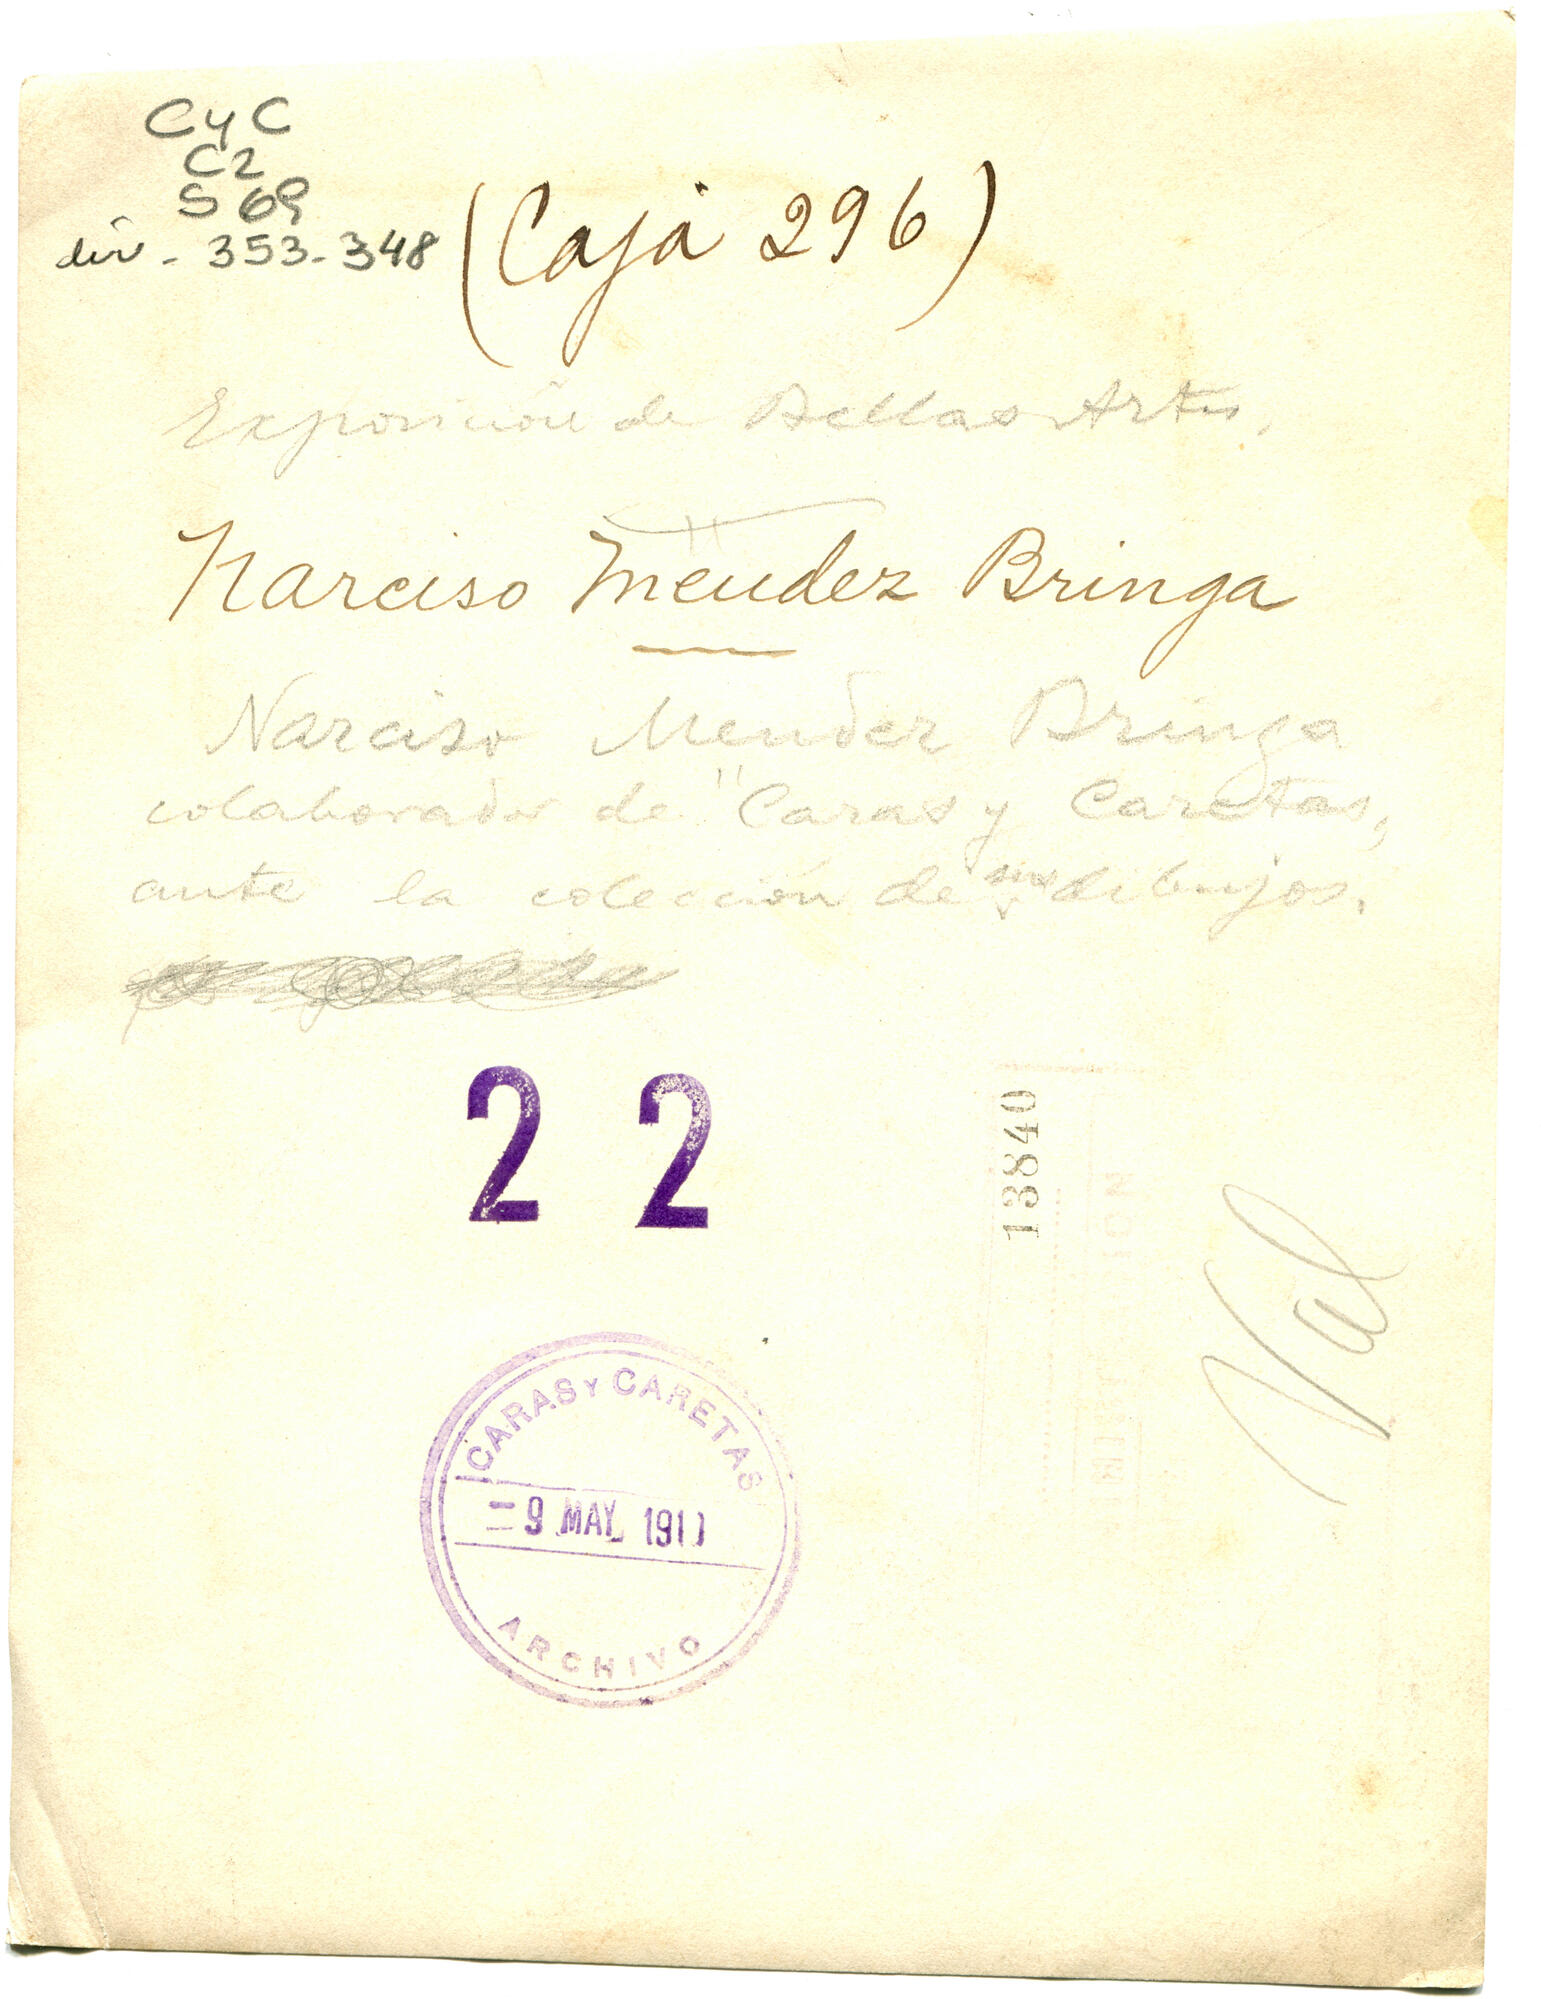 CyC
C2
S 69
div - 353-348
(Caja 296)
Exposición de Bellas Artes.
Narciso Méndez Bringa
Narciso Mendez Bringa
colaborador de "Caras y Caretas,
ante la colección de sus dibujos.
22
13840
Val
CARAS Y CARETAS
=9 MAY 191
ARCHIVO